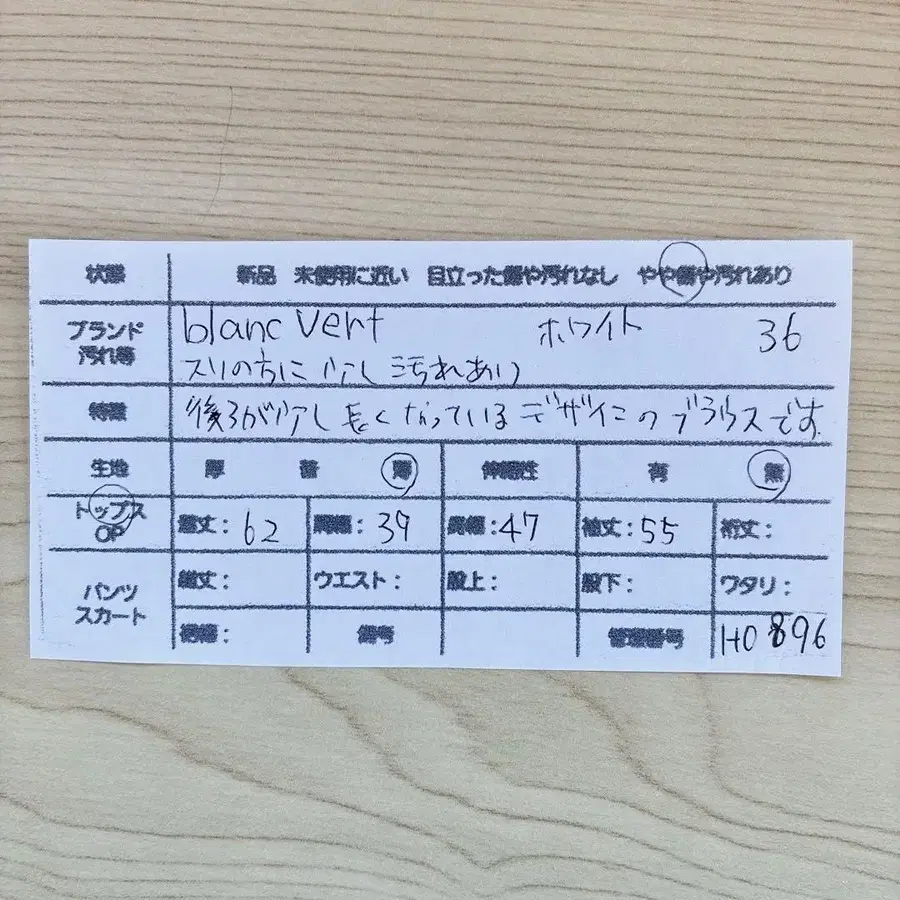 状態 新品 未使用に近い 目立った傷や汚れなし やや傷や汚れあり
ブランド 汚れ等 blanc vert ホワイト 36
スソの方に少し汚れあり
特徴 後ろが少し長くなっているデザインのブラウスです
生地 厚 普 薄 伸縮性 有 無
トップス OP 着丈: 62 肩幅: 39 身幅: 47 袖丈: 55 裄丈:
パンツ スカート 総丈: ウエスト: 股上: 股下: ワタリ:
裾幅: 備考 管理番号 HO896